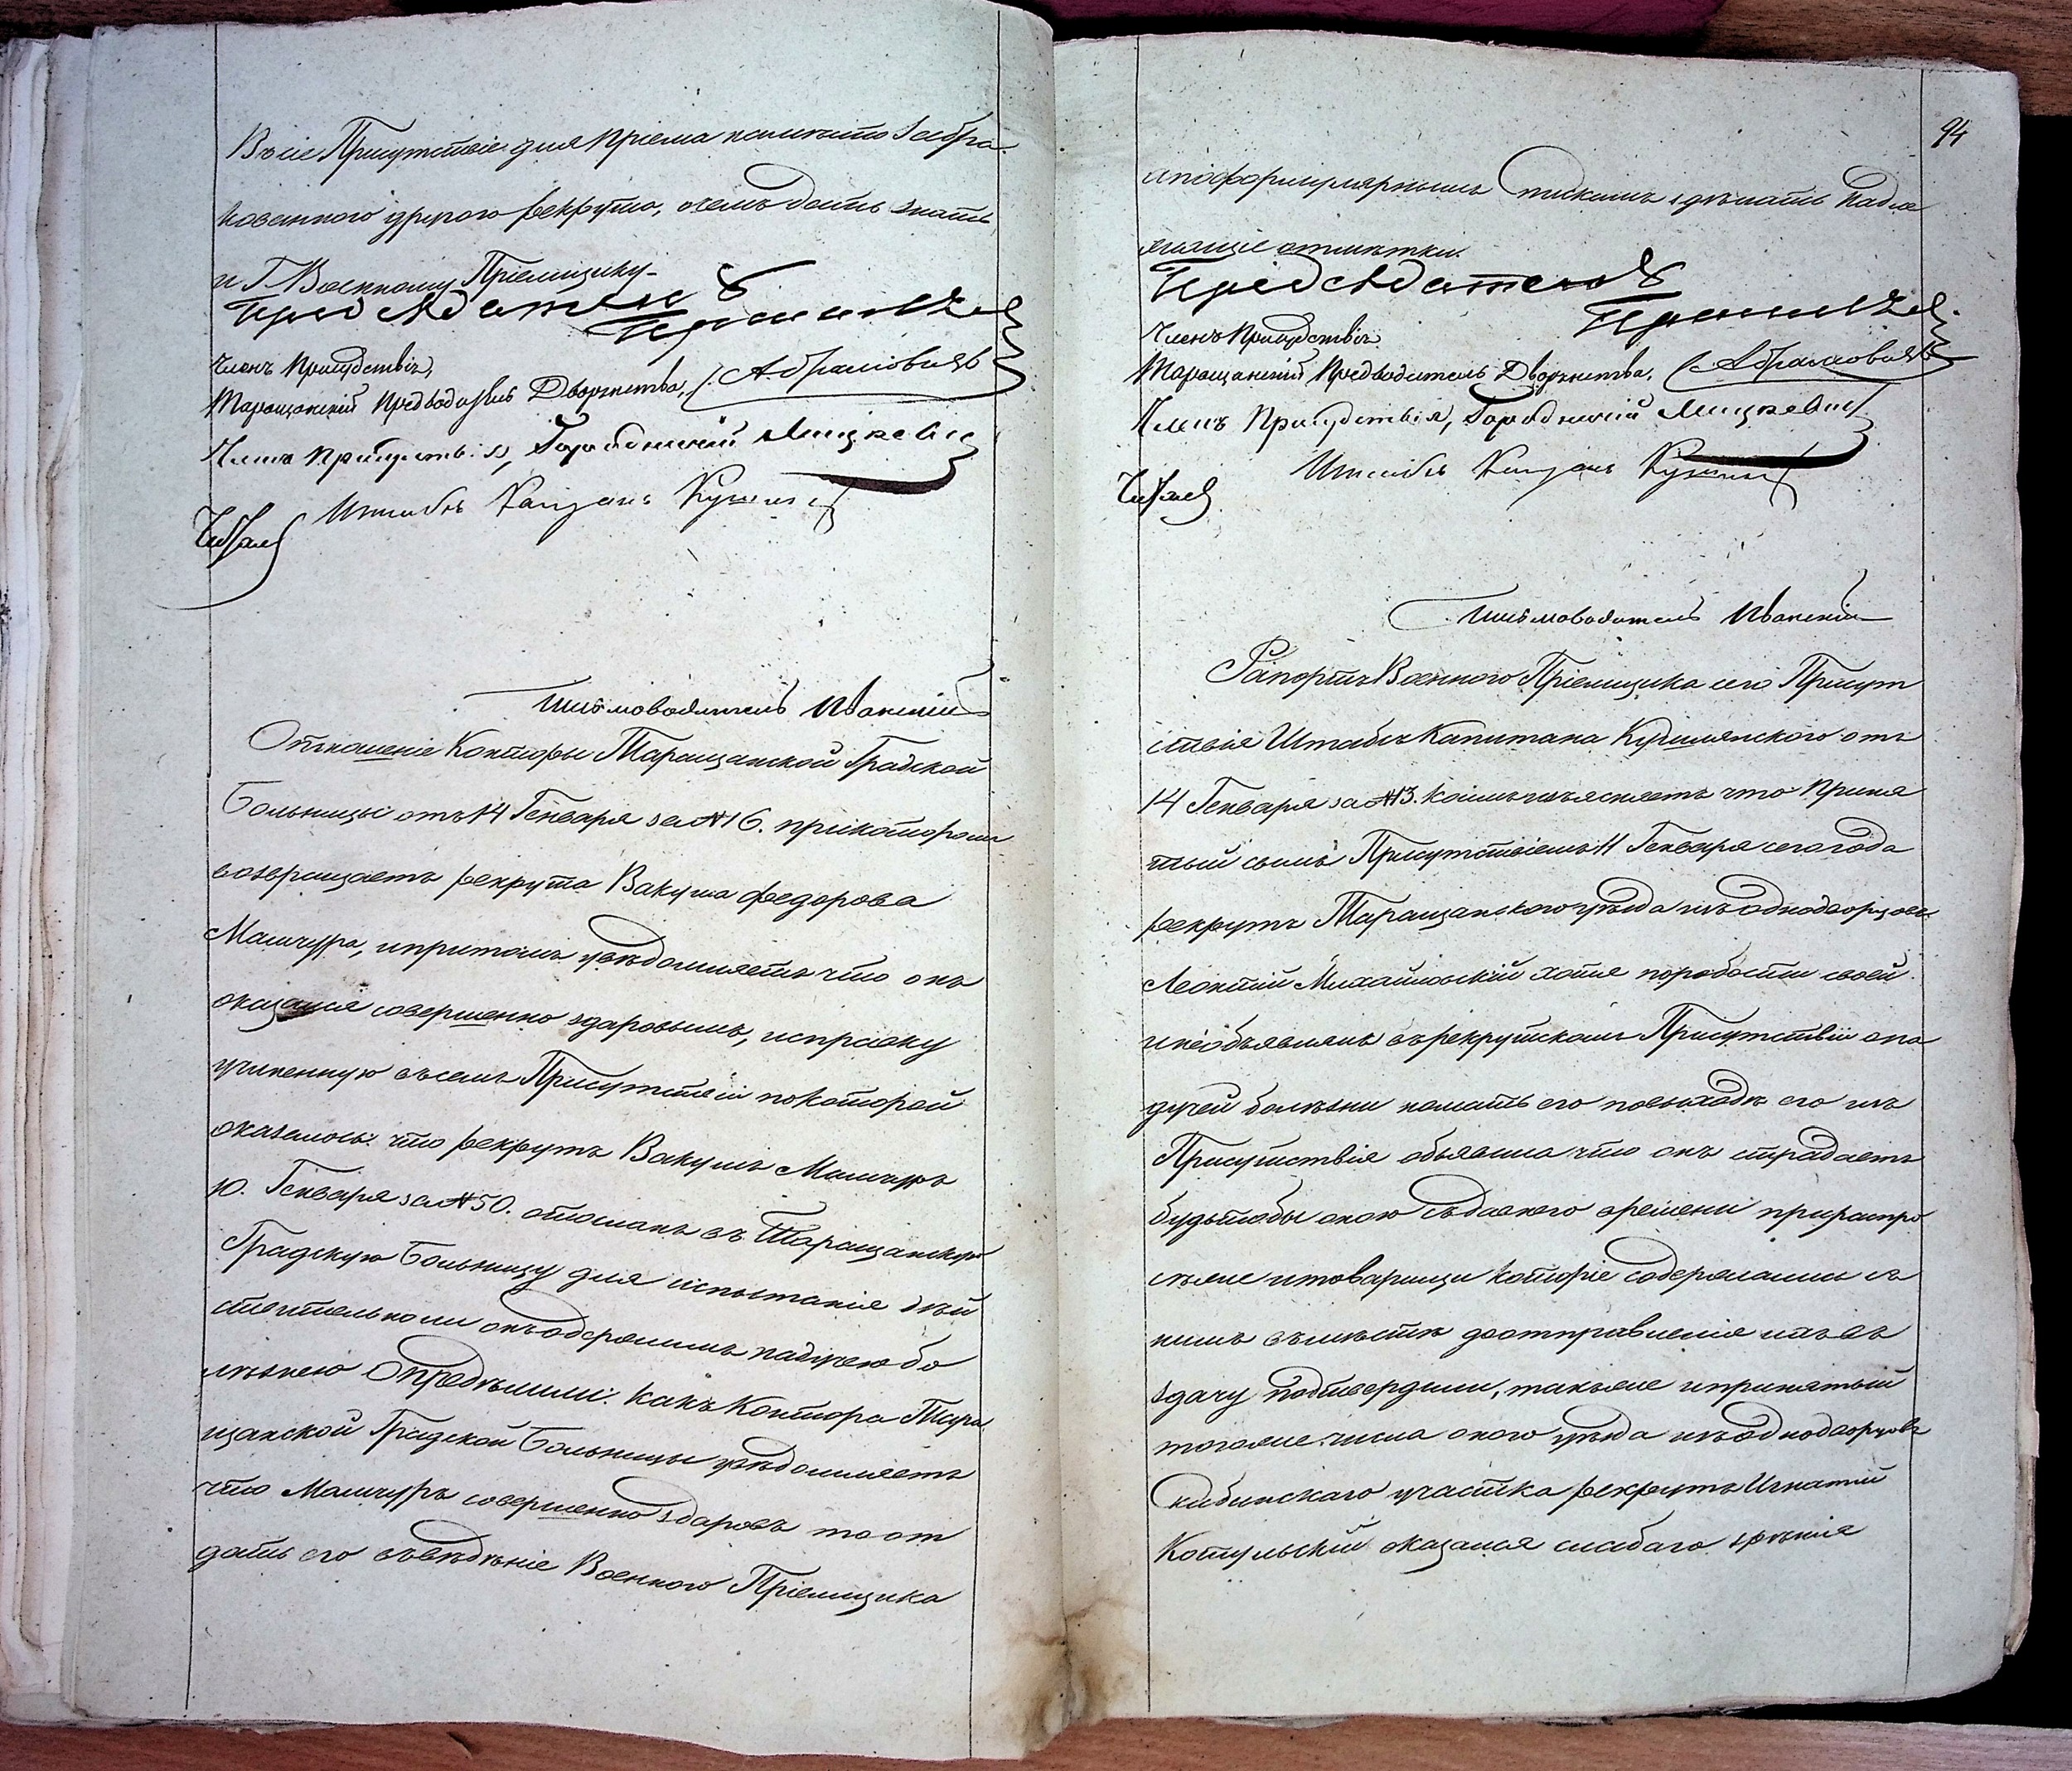 Въ сіе Присутствіе для пріема на мѣсто забра
кованного другого рекрута, о чемъ дать знать
и Г. Военному Пріемщику
Председатель
Членъ Присудствія,
Таращанскій Предводитель Дворянства, Абрамовичъ
Членъ Присудствія, Городничий Мицкевич
Штабсъ Капитанъ
Читалъ
Письмоводитель Иванскій
Отношеніе Конторы Таращанской Градской
Больницы отъ 14 Генваря за № 16. при котором
возвращаетъ рекрута Вакула Федорова
Мамчура, и притомъ увѣдомляетъ что онъ
оказался совершенно здоровымъ, и справку
учиненную въ семъ Присутствіи по которой
оказалось что рекрутъ Вакулъ Мамчуръ
10. Генваря за № 50. отосланъ въ Таращанскую
Градскую Больницу для испытанія дѣй
ствительно ли онъ одержимъ падучею бо
лѣзнею Опредѣлили: какъ Контора Тара
щанской Градской Больницы увѣдомляетъ
что Мамчуръ совершенно здоровъ то от
дать его въ вѣдѣніе Военного Пріемщика
94
и по формулярнымъ Спискамъ здѣлать надле
жащие отмѣтки.
Председатель
Членъ Присудствія
Таращанскій Предводитель Дворянства, Абрамовичъ
Членъ Присудствія, Городничий Мицкевич
Штабсъ Капитанъ
Читалъ
Письмоводитель Иванскій
Рапортъ Военного Пріемщика сего Присут
ствія Штабсъ Капитана Кузмлянского отъ
14 Генваря за № 13. коимъ изъясняетъ что Приня
тый симъ Присутствіемъ 11 Генваря сего года
рекрутъ Таращанского уѣзда изъ однодворцовъ
Леонтий Михайловскій хотя по робости своей
и не объявилъ въ рекрутскомъ Присутствіи о па
дучей болѣзни но мать его по выходѣ его изъ
Присутствія объявила что онъ страдаетъ
будьтобы оною съ давнего времени при распро
сѣ же и товарищи которіе содержались съ
нимъ вмѣстѣ до отправленія ихъ въ
здачу подтвердили, также и принятый
того же числа оного уѣзда изъ однодворцовъ
Скибинскаго участка рекрутъ Игнатій
Котульскій оказался слабаго зрѣнія